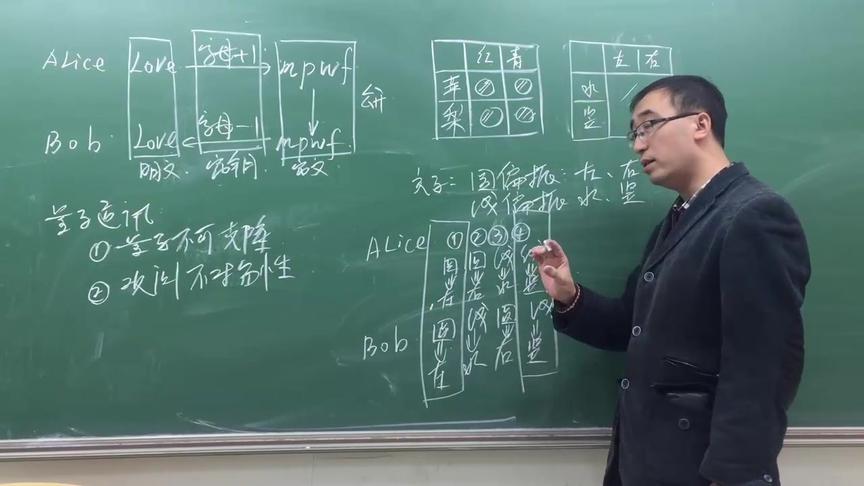 Alice Love 字母+1 mpwf
Bob Love 字母-1 mpwf
明文 密钥 密文
红 青
苹
梨
左 右
水
竖
量子通讯
① 量子不可克隆
② 次序不对易性
光子: 圆偏振: 左、右
线偏振: 水、竖
Alice ① ② ③ ④
圆 圆 线 线
左 右 水 竖
Bob 圆 线 圆 线
左 水 右 竖